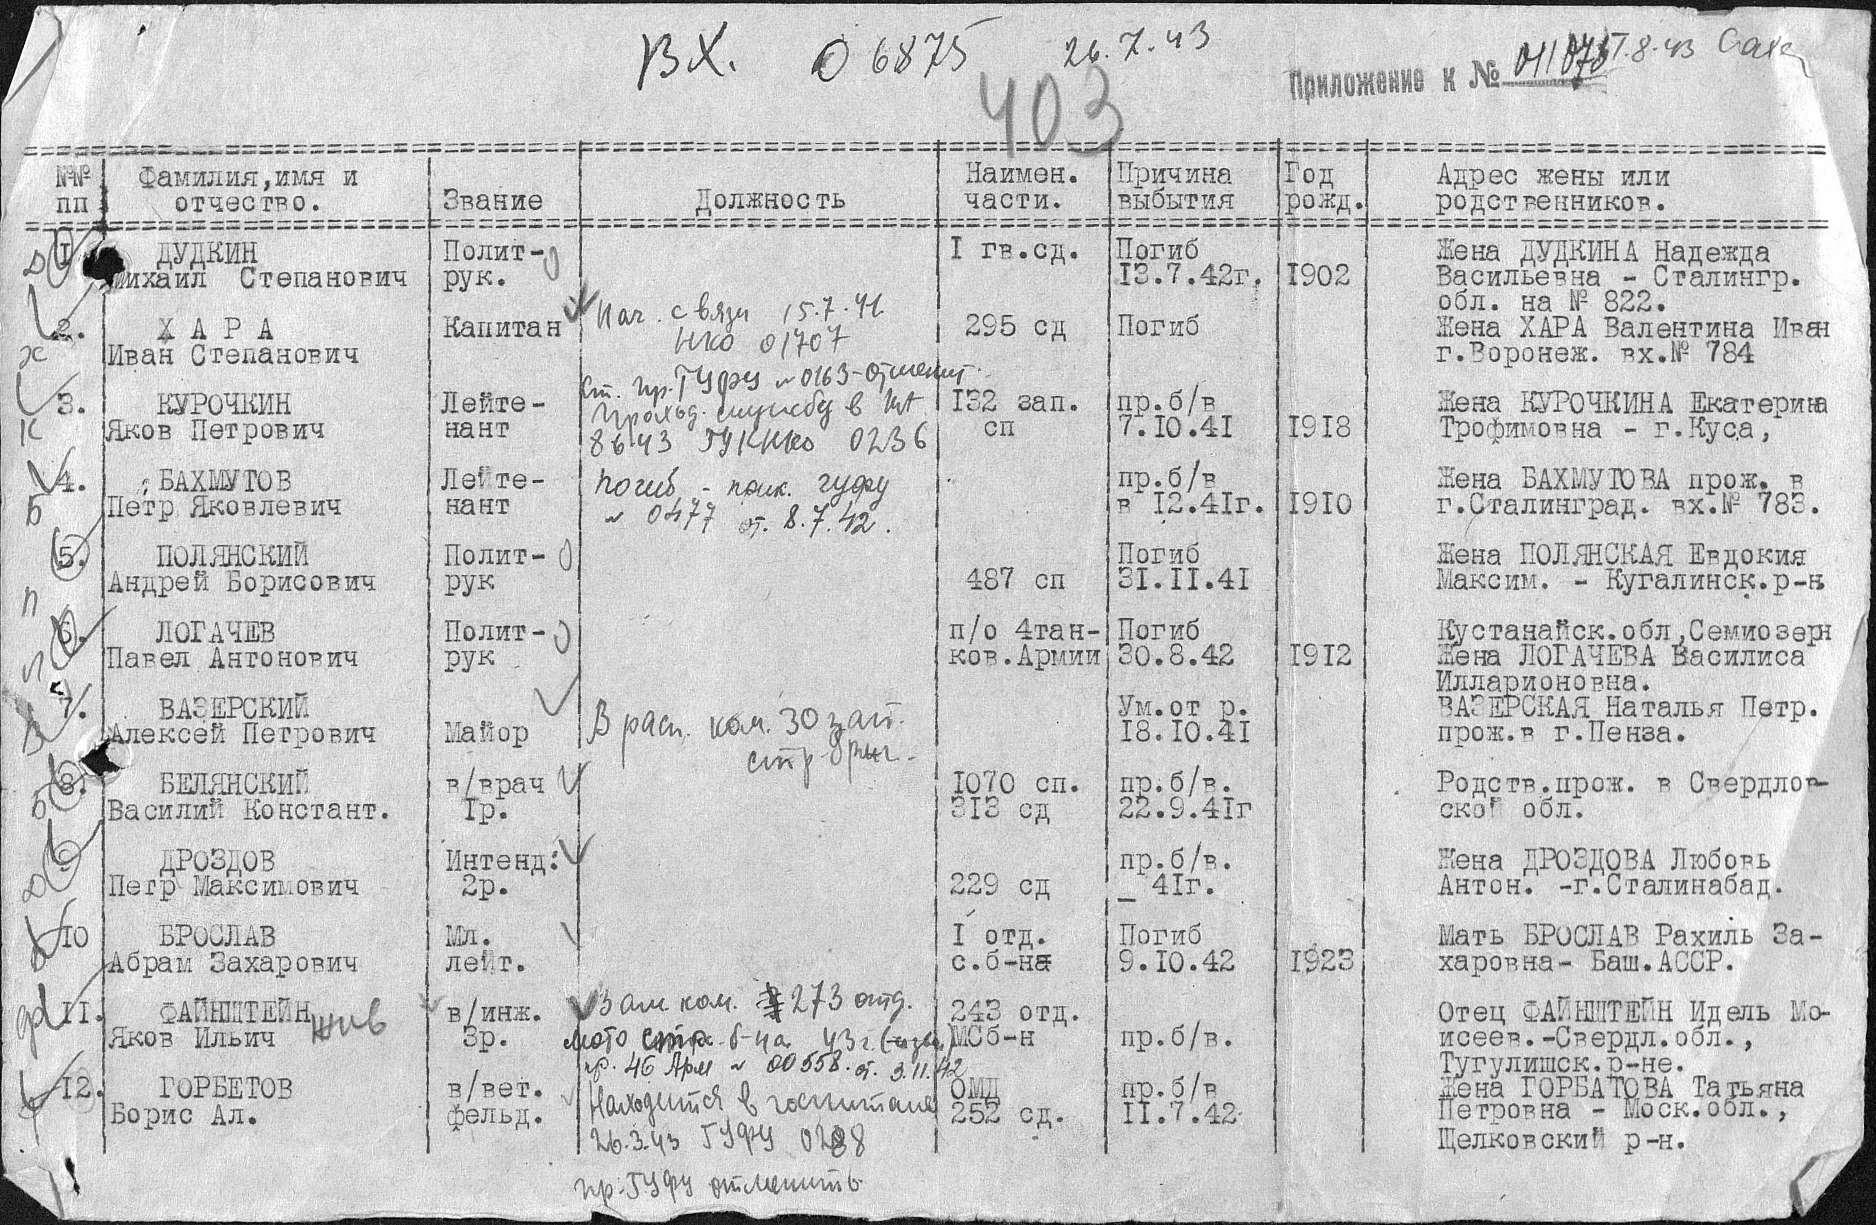 вх. 06875 26.7.43
Приложение к № 7.8.43
403
№№ Фамилия,имя и Звание Должность Наимен. Причина Год Адрес жены или
пп отчество. части. выбытия рожд. родственников.
I ДУДКИН Полит- I гв.сд. Погиб Жена ДУДКИНА Надежда
Михаил Степанович рук. 13.7.42г. 1902 Васильевна - Сталингр.
обл. на № 822.
2. Х А Р А Капитан Нач. связи 15.7.41 295 сд Погиб Жена ХАРА Валентина Иван
Иван Степанович НКО 01707 г.Воронеж. вх.№ 784
Ст. пр. ГУФУ №0163-отменит.
3. КУРОЧКИН Лейте- проход. службу в 132 зап. пр.б/в Жена КУРОЧКИНА Екатерина
Яков Петрович нант ГУКНКО 0236 сп 7.10.41 1918 Трофимовна - г.Куса,
4. БАХМУТОВ Лейте- погиб - гуфу пр.б/в Жена БАХМУТОВА прож. в
Петр Яковлевич нант № 0477 от. 8.7.42. в 12.41г. 1910 г.Сталинград. вх.№ 783.
5. ПОЛЯНСКИЙ Полит- Погиб Жена ПОЛЯНСКАЯ Евдокия
Андрей Борисович рук 487 сп 31.II.41 Максим. - Кугалинск.р-н
6. ЛОГАЧЕВ Полит- п/о 4тан- Погиб Кустанайск.обл,Семиозерн
Павел Антонович рук ков.Армии 30.8.42 1912 Жена ЛОГАЧЕВА Василиса
Илларионовна.
7. ВАЗЕРСКИЙ Ум.от р. ВАЗЕРСКАЯ Наталья Петр.
Алексей Петрович Майор В расп. ком. 30 зап. 18.10.41 прож.в г.Пенза.
стр. бриг.
8. БЕЛЯНСКИЙ в/врач 1070 сп. пр.б/в. Родств.прож. в Свердлов-
Василий Констант. Iр. 313 сд 22.9.41г ской обл.
9. ДРОЗДОВ Интенд. пр.б/в. Жена ДРОЗДОВА Любовь
Петр Максимович 2р. 229 сд _ 41г. Антон. -г.Сталинабад.
10 БРОСЛАВ Мл. I отд. Погиб Мать БРОСЛАВ Рахиль За-
Абрам Захарович лейт. с.б-на 9.10.42 1923 харовна- Баш.АССР.
II. ФАЙНШТЕЙН жив в/инж. Зам ком. 273 отд. 243 отд. Отец ФАЙНШТЕЙН Идель Мо-
Яков Ильич 3р. мото стр. б-на 43г. МСб-н пр.б/в. исеев.-Свердл.обл.,
пр. 46 Арм № 00558 от. 3.11.42 Тугулишск.р-не.
12. ГОРБЕТОВ в/вет. Находится в госпитале ОМД пр.б/в Жена ГОРБАТОВА Татьяна
Борис Ал. фельд. 26.3.43 ГУФУ 0288 252 сд. II.7.42 Петровна - Моск.обл.,
Щелковский р-н.
пр. ГУФУ отменить